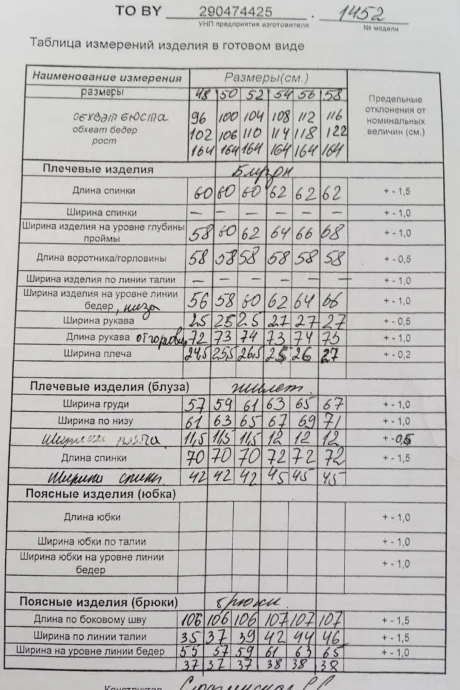 ТО BY 290474425 . 1452
УНП предприятия изготовителя № модели
Таблица измерений изделия в готовом виде
Наименование измерения Размеры(см.) Предельные отклонения от номинальных величин (см.)
размеры 48 50 52 54 56 58
обхват бюста 96 100 104 108 112 116
обхват бедер 102 106 110 114 118 122
рост 164 164 164 164 164 164
Плечевые изделия Блузон
Длина спинки 60 60 60 62 62 62 + - 1,5
Ширина спинки – – – – – – + - 1,0
Ширина изделия на уровне глубины проймы 58 60 62 64 66 68 + - 1,0
Длина воротника/горловины 58 58 58 58 58 58 + - 0,5
Ширина изделия по линии талии – – – – – – + - 1,0
Ширина изделия на уровне линии бедер, низа 56 58 60 62 64 66 + - 1,0
Ширина рукава 25 25 25 27 27 27 + - 0,5
Длина рукава от горловины 72 73 74 73 74 75 + - 1,0
Ширина плеча 24,5 25,5 26,5 25 26 27 + - 0,2
Плечевые изделия (блуза) жилет
Ширина груди 57 59 61 63 65 67 + - 1,0
Ширина по низу 61 63 65 67 69 71 + - 1,0
Ширина плеча 11,5 11,5 11,5 12 12 12 + - 0,5
Длина спинки 70 70 70 72 72 72 + - 1,5
Ширина спинки 42 42 42 45 45 45
Поясные изделия (юбка)
Длина юбки + - 1,0
Ширина юбки по талии + - 1,0
Ширина юбки на уровне линии бедер + - 1,0
Поясные изделия (брюки) брюки
Длина по боковому шву 106 106 106 107 107 107 + - 1,5
Ширина по линии талии 35 37 39 42 44 46 + - 1,5
Ширина на уровне линии бедер 55 57 59 61 63 65 + - 1,0
37 37 37 38 38 38
Конструктор